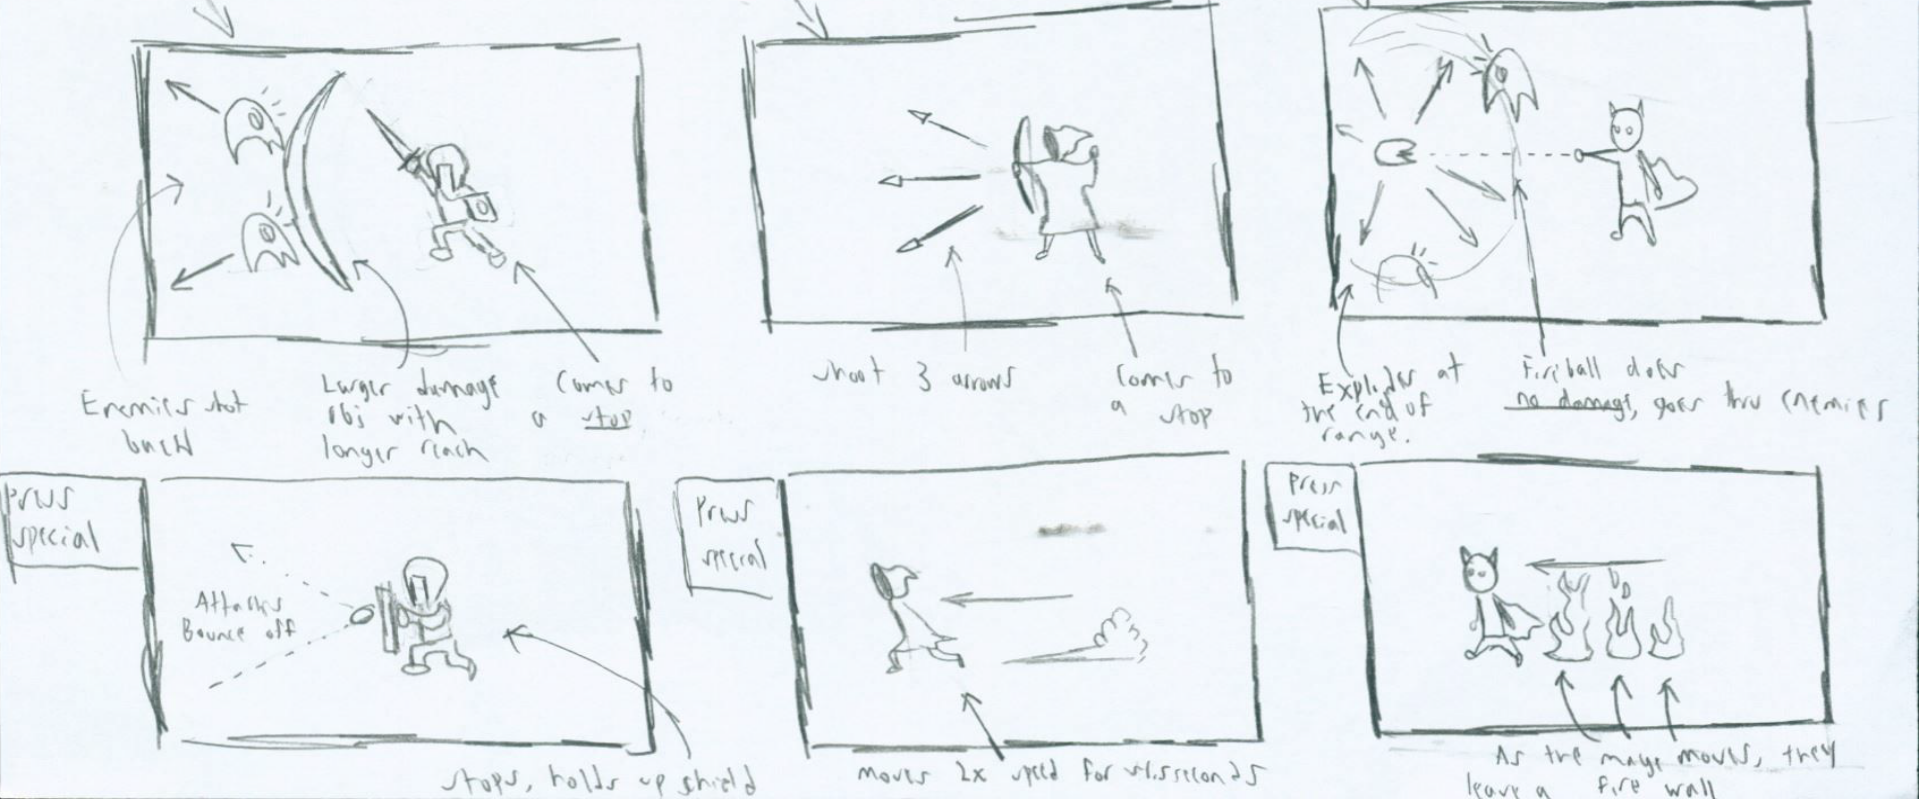 Enemies shot
back
Larger damage
obj with
longer reach
Comes to
a stop
shoot 3 arrows
Comes to
a stop
Explodes at
the end of
range.
Fireball does
no damage, goes thru enemies
Press
special
Attacks
Bounce off
stops, holds up shield
Press
special
moves 2x speed for
Press
special
As the mage moves, they
leave a fire wall